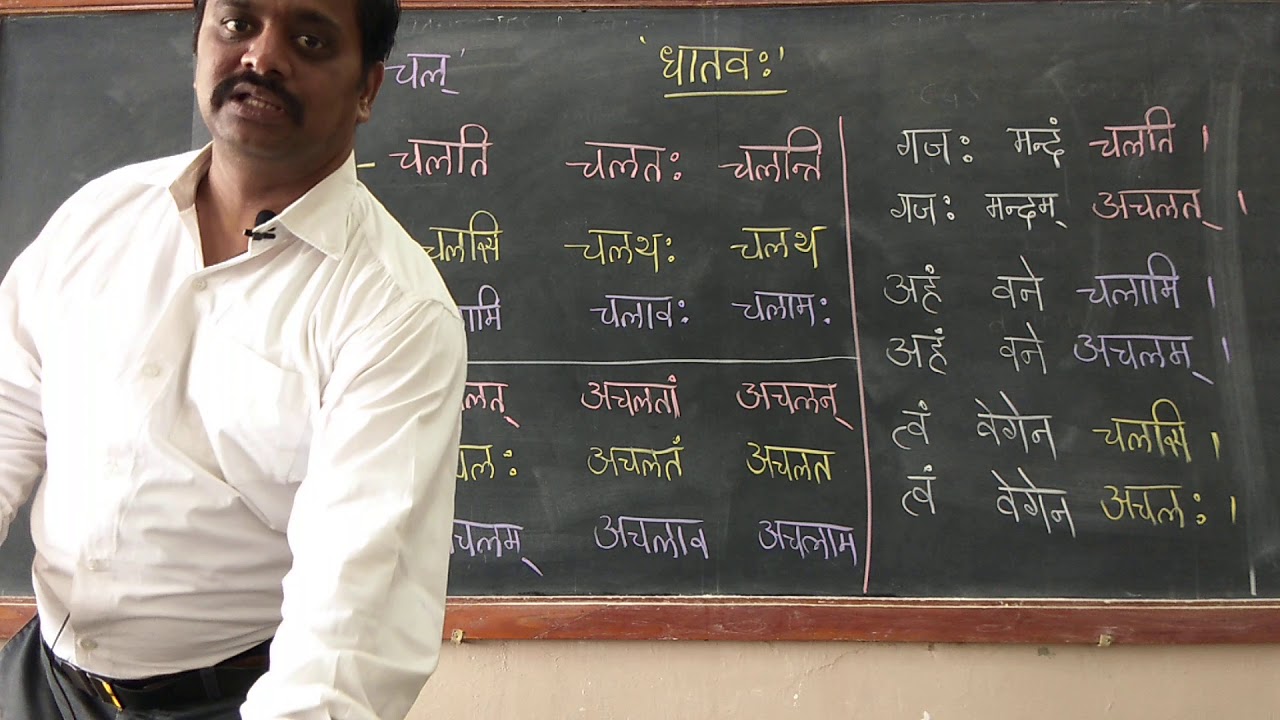 चल्' 'धातवः'
- चलति चलतः चलन्ति
चलसि चलथः चलथ
ामि चलावः चलामः
लत् अचलतां अचलन्
चलः अचलतं अचलत
चलम् अचलाव अचलाम
गजः मन्दं चलति ।
गजः मन्दम् अचलत् ।
अहं वने चलामि ।
अहं वने अचलम् ।
त्वं वेगेन चलसि ।
त्वं वेगेन अचलः ।